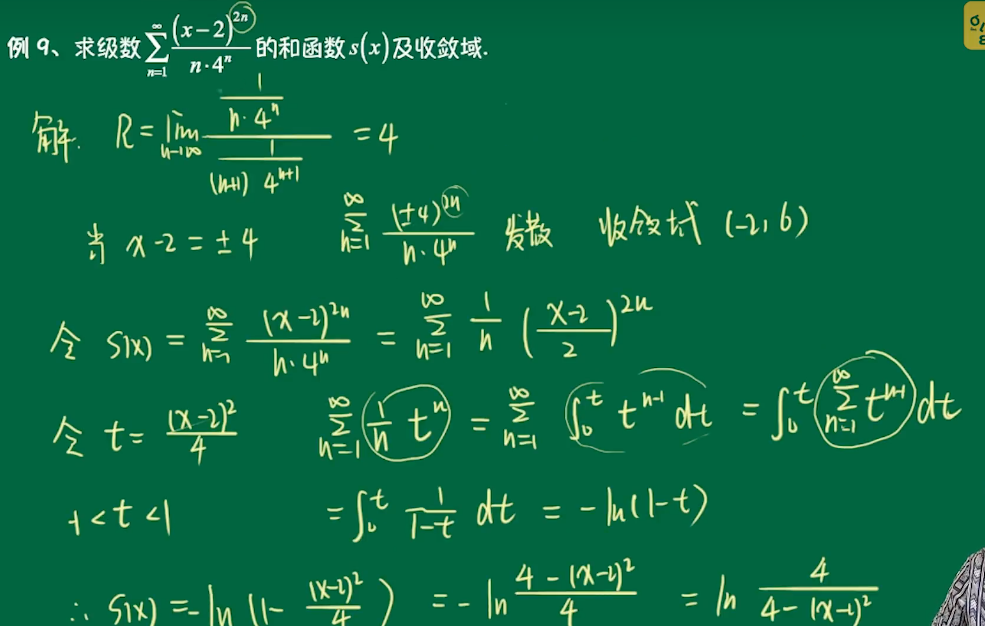 例 9、求级数 \sum_{n=1}^{\infty} \frac{(x-2)^{2n}}{n·4^n} 的和函数 s(x) 及收敛域.
解. R = \lim_{n→∞} \frac{\frac{1}{n·4^n}}{\frac{1}{(n+1) 4^{n+1}}} = 4
当 x-2 = ±4 \sum_{n=1}^{∞} \frac{(±4)^{2n}}{n·4^n} 发散 收敛域 (-2, 6)
令 S(x) = \sum_{n=1}^{∞} \frac{(x-2)^{2n}}{n·4^n} = \sum_{n=1}^{∞} \frac{1}{n} (\frac{x-2}{2})^{2n}
令 t = \frac{(x-2)^2}{4} \sum_{n=1}^{∞} \frac{1}{n} t^n = \sum_{n=1}^{∞} ∫_0^t t^{n-1} dt = ∫_0^t \sum_{n=1}^{∞} t^{n-1} dt
-1<t<1 = ∫_0^t \frac{1}{1-t} dt = -ln(1-t)
∴ S(x) = -ln (1- \frac{(x-2)^2}{4}) = -ln \frac{4-(x-2)^2}{4} = ln \frac{4}{4-(x-2)^2}